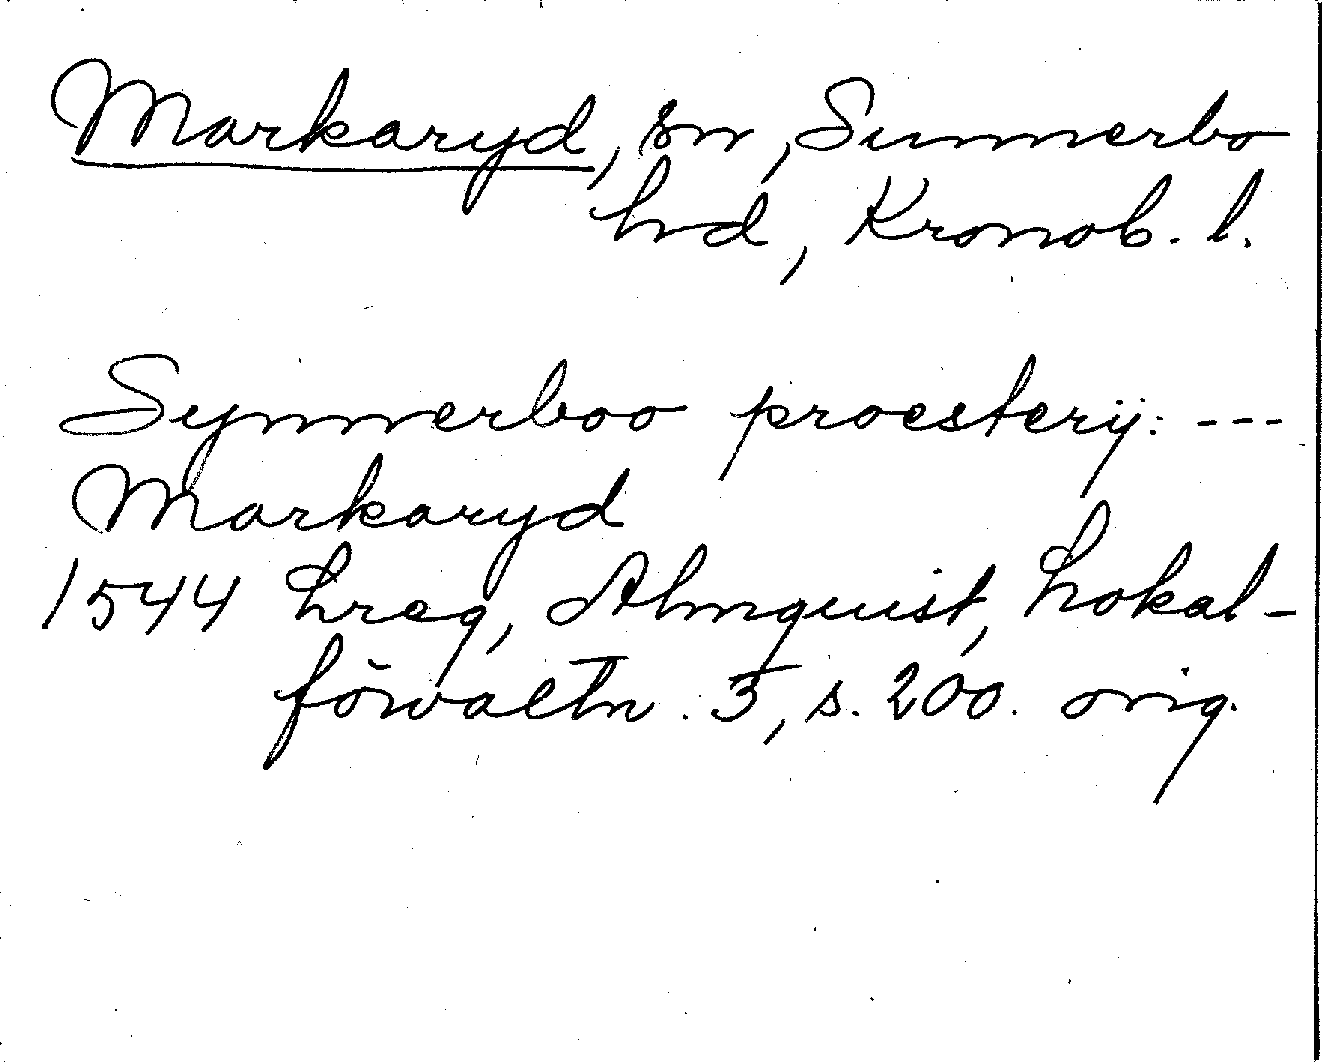 Markaryd, sn, Sunnerbo
hd, Kronob. l.
Synnerboo proesterij: ---
Markaryd
1544 Lreg, Almquist, Lokal-
förvaltn. 3, s. 200. orig.